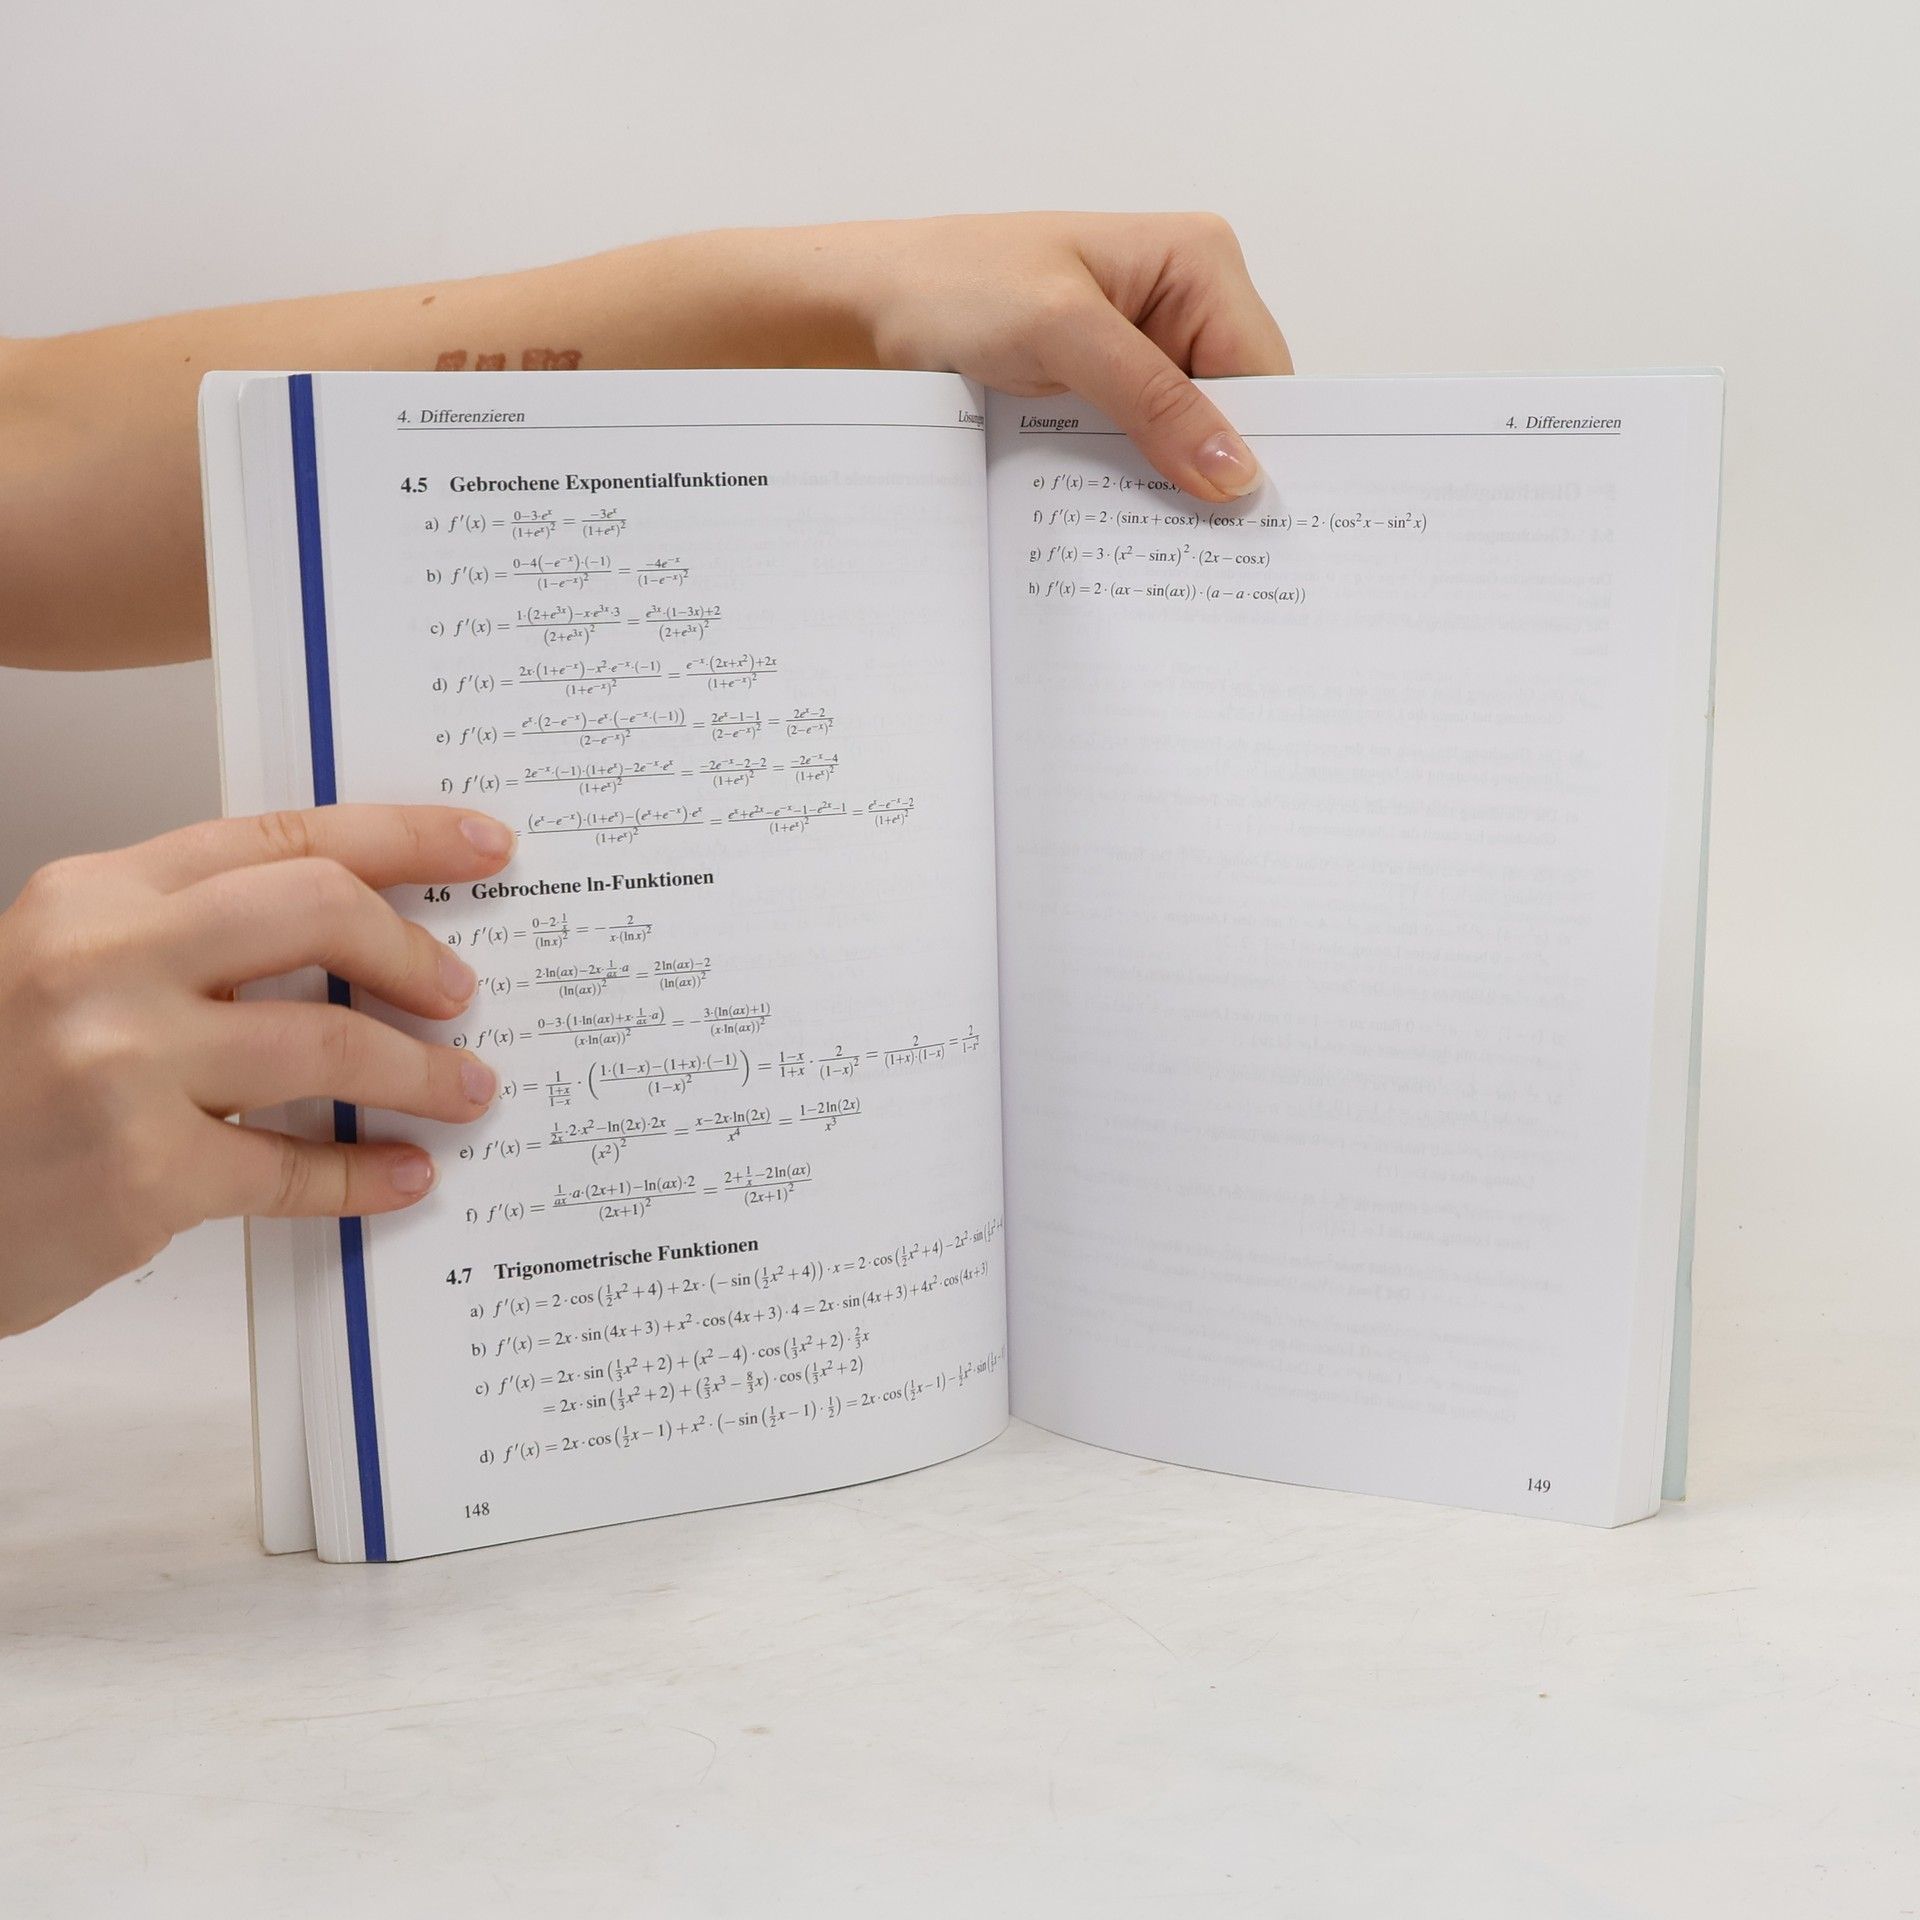 4. Differenzieren
4.5 Gebrochene Exponentialfunktionen
a) f′(x) = (0−3·eˣ)/(1+eˣ)² = (−3eˣ)/(1+eˣ)²
b) f′(x) = (0−4(−e⁻ˣ)·(−1))/(1−e⁻ˣ)² = (−4e⁻ˣ)/(1−e⁻ˣ)²
c) f′(x) = (1·(2+e³ˣ)−x·e³ˣ·3)/(2+e³ˣ)² = (e³ˣ·(1−3x)+2)/(2+e³ˣ)²
d) f′(x) = (2x·(1+e⁻ˣ)−x²·e⁻ˣ·(−1))/(1+e⁻ˣ)² = (e⁻ˣ·(2x+x²)+2x)/(1+e⁻ˣ)²
e) f′(x) = (eˣ·(2−e⁻ˣ)−eˣ·(−e⁻ˣ·(−1)))/(2−e⁻ˣ)² = (2eˣ−1−1)/(2−e⁻ˣ)² = (2eˣ−2)/(2−e⁻ˣ)²
f) f′(x) = (2e⁻ˣ·(−1)·(1+eˣ)−2e⁻ˣ·eˣ)/(1+eˣ)² = (−2e⁻ˣ−2−2)/(1+eˣ)² = (−2e⁻ˣ−4)/(1+eˣ)²
= ((eˣ−e⁻ˣ)·(1+eˣ)−(eˣ+e⁻ˣ)·eˣ)/(1+eˣ)² = (eˣ+e²ˣ−e⁻ˣ−1−e²ˣ−1)/(1+eˣ)² = (eˣ−e⁻ˣ−2)/(1+eˣ)²
4.6 Gebrochene ln-Funktionen
a) f′(x) = (0−2·1/x)/(lnx)² = −2/(x·(lnx)²)
f′(x) = (2·ln(ax)−2x·1/(ax)·a)/(ln(ax))² = (2ln(ax)−2)/(ln(ax))²
c) f′(x) = (0−3·(1·ln(ax)+x·1/(ax)·a))/(x·ln(ax))² = −(3·(ln(ax)+1))/(x·ln(ax))²
x) = 1/((1+x)/(1−x)) · ((1·(1−x)−(1+x)·(−1))/(1−x)²) = (1−x)/(1+x) · 2/(1−x)² = 2/((1+x)·(1−x)) = 2/(1−x²)
e) f′(x) = (1/(2x)·2·x²−ln(2x)·2x)/(x²)² = (x−2x·ln(2x))/x⁴ = (1−2ln(2x))/x³
f) f′(x) = (1/(ax)·a·(2x+1)−ln(ax)·2)/(2x+1)² = (2+1/x−2ln(ax))/(2x+1)²
4.7 Trigonometrische Funktionen
a) f′(x) = 2·cos(½x²+4)+2x·(−sin(½x²+4))·x = 2·cos(½x²+4)−2x²·sin(½x²+4
b) f′(x) = 2x·sin(4x+3)+x²·cos(4x+3)·4 = 2x·sin(4x+3)+4x²·cos(4x+3)
c) f′(x) = 2x·sin(⅓x²+2)+(x²−4)·cos(⅓x²+2)·⅔x
= 2x·sin(⅓x²+2)+(⅔x³−8/3x)·cos(⅓x²+2)
d) f′(x) = 2x·cos(½x−1)+x²·(−sin(½x−1)·½) = 2x·cos(½x−1)−½x²·sin(½x−1
148
Lösungen 4. Differenzieren
e) f′(x) = 2·(x+cosx)
f) f′(x) = 2·(sinx+cosx)·(cosx−sinx) = 2·(cos²x−sin²x)
g) f′(x) = 3·(x²−sinx)²·(2x−cosx)
h) f′(x) = 2·(ax−sin(ax))·(a−a·cos(ax))
149